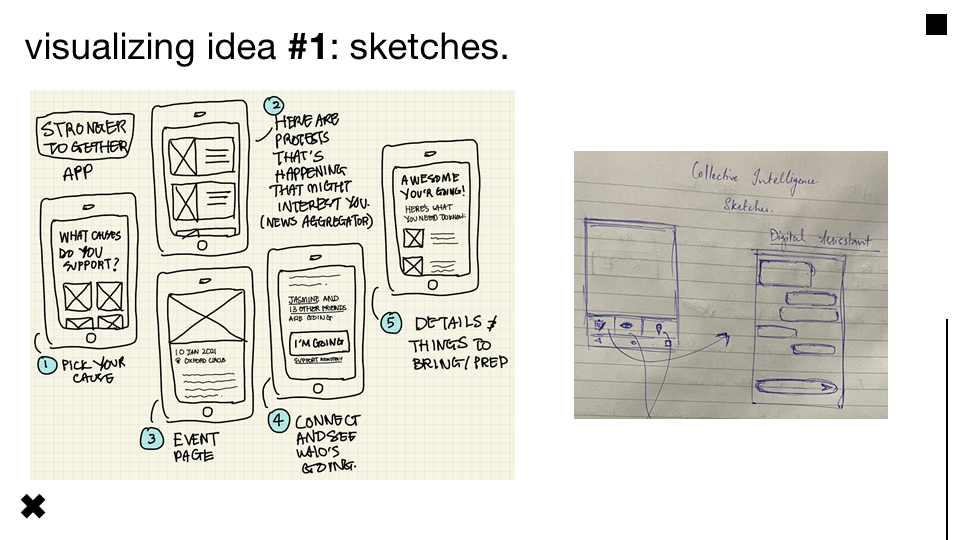 visualizing idea #1: sketches.
STRONGER
TOGETHER
APP
WHAT CAUSES
DO YOU
SUPPORT?
1 PICK YOUR
CAUSE
2
HERE ARE
PROTESTS
THAT'S
HAPPENING
THAT MIGHT
INTEREST YOU.
(NEWS AGGREGATOR)
10 JAN 2021
@ OXFORD CIRCUS
3 EVENT
PAGE
JASMINE AND
13 OTHER FRIENDS
ARE GOING
I'M GOING
SUPPORT REMOTELY
4 CONNECT
AND SEE
WHO'S
GOING.
AWESOME
YOU'R GOING!
HERE'S WHAT
YOU NEED TO KNOW:
5 DETAILS &
THINGS TO
BRING/PREP
Collective Intelligence
Sketches.
Digital Assistant